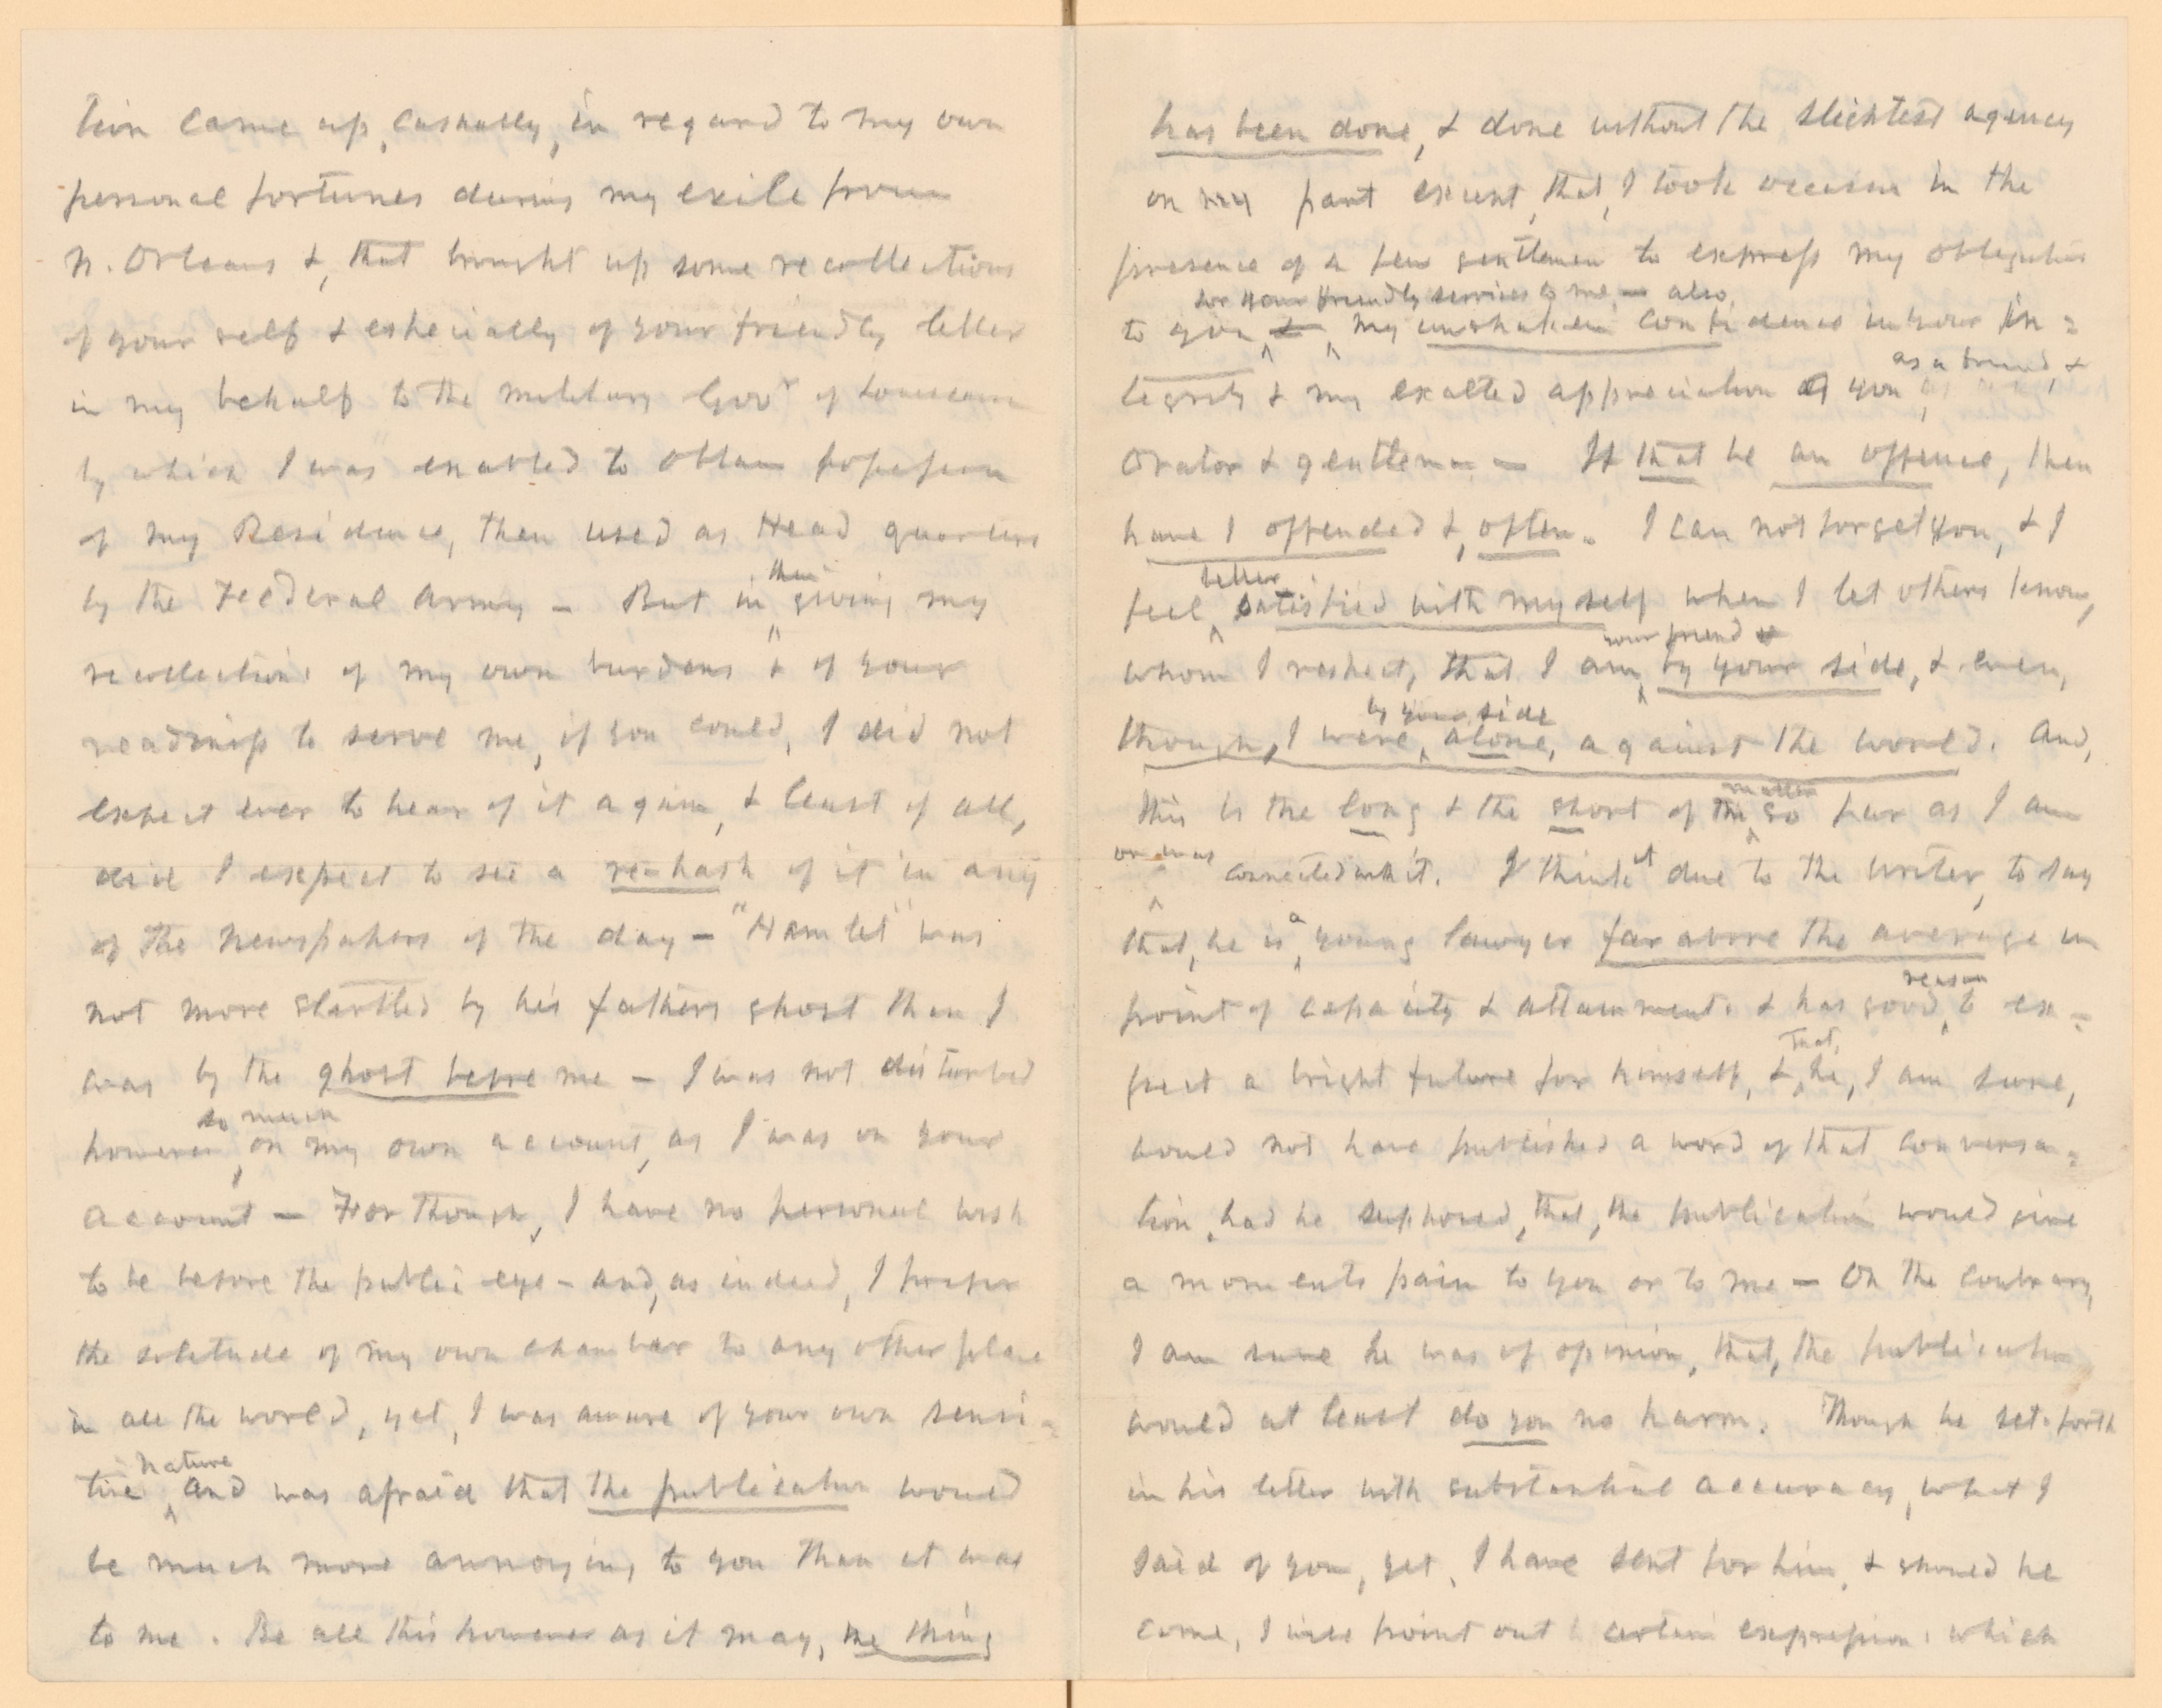 tion came up, casually, in regard to my own
personal fortunes during my exile from
N. Orleans &, that brought up some recollections
of your self & especially of your friendly letter
in my behalf to the military Govr of Louisiana
by which I was enabled to obtain possession
of my Residence, then used as Head quarters
by the Federal Army — But in then giving my
recollections of my own burdens & of your
readiness to serve me, if you could, I did not
expect ever to hear of it again, & least of all,
did I expect to see a re-hash of it in any
of the Newspapers of the day — "Hamlet" was
not more startled by his fathers ghost than I
was by the ghost before me — I was not disturbed
so much
however, on my own account, as I was on your
account — For though, I have no personal wish
to be before the public eye — and, as indeed, I prefer
the solitude of my own chamber to any other place
in all the world, yet, I was aware of your own sensi=
nature
tive and was afraid that the publication would
be much more annoying to you than it was
to me. Be all this however as it may, the thing
has been done, & done without the slightest agency
on my part except, that, I took occasion in the
presence of a few gentlemen to express my obligations
for your friendly services to me — also,
to you & my unshaken confidence in your in=
as a friend, &
tegrity & my exalted appreciation of you,
Orator & gentleman — If that be an offence, then
have I offended &, often. I can not forget you, & I
better
feel satisfied with my self when I let others know,
your friend
whom I respect, that I am, by your side, & even,
by your side
though, I were, alone, against the world. And,
matter
this is the long & the short of the so far as I am
or was connected with it. I think it due to the writer, to say
that, he is a young lawyer far above the average in
reason
point of capacity & attainments & has good to ex=
that,
pect a bright future for himself, & he, I am sure,
would not have published a word of that conversa=
tion, had he supposed, that, the publication would give
a moments pain to you or to me — On the contrary,
I am sure he was of opinion, that, the publication
would at least do you no harm. Though he set-forth
in his letter with substantial accuracy, what I
said of you, yet, I have sent for him, & should he
come, I will point out certain expressions which